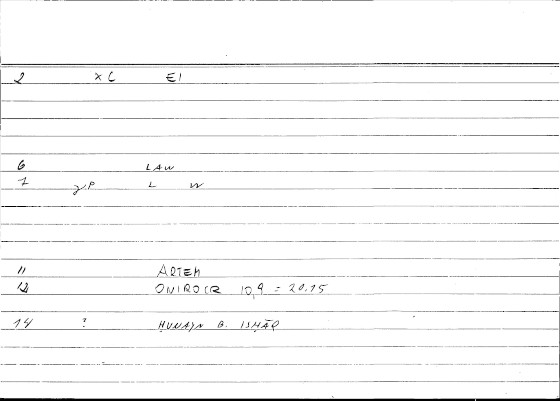 2 x C EI
6 LAW
7 γP L W
11 ARTEM
12 ONIROCR 10,9 = 20.15
14 ? ḤUNAYN B. ISḤĀQ